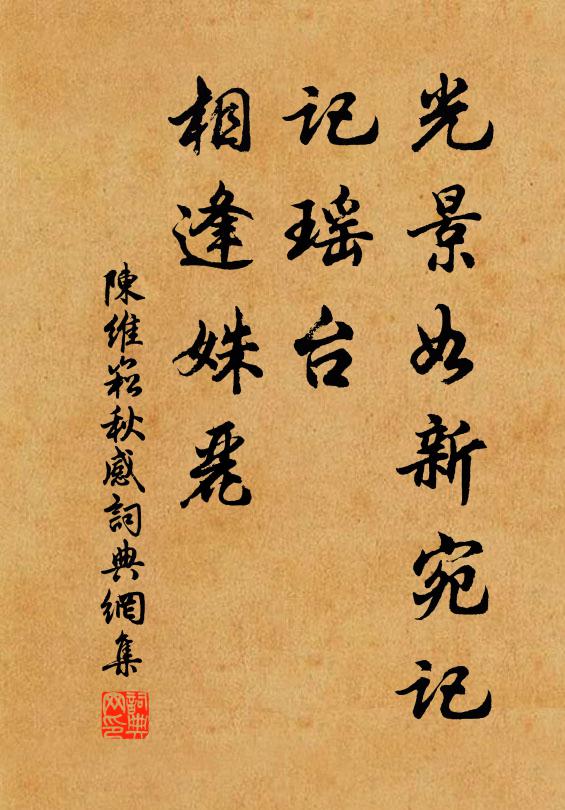 光景如新宛记
记瑶台
相逢姝丽
陳維崧秋感詞典網集
詞典网印